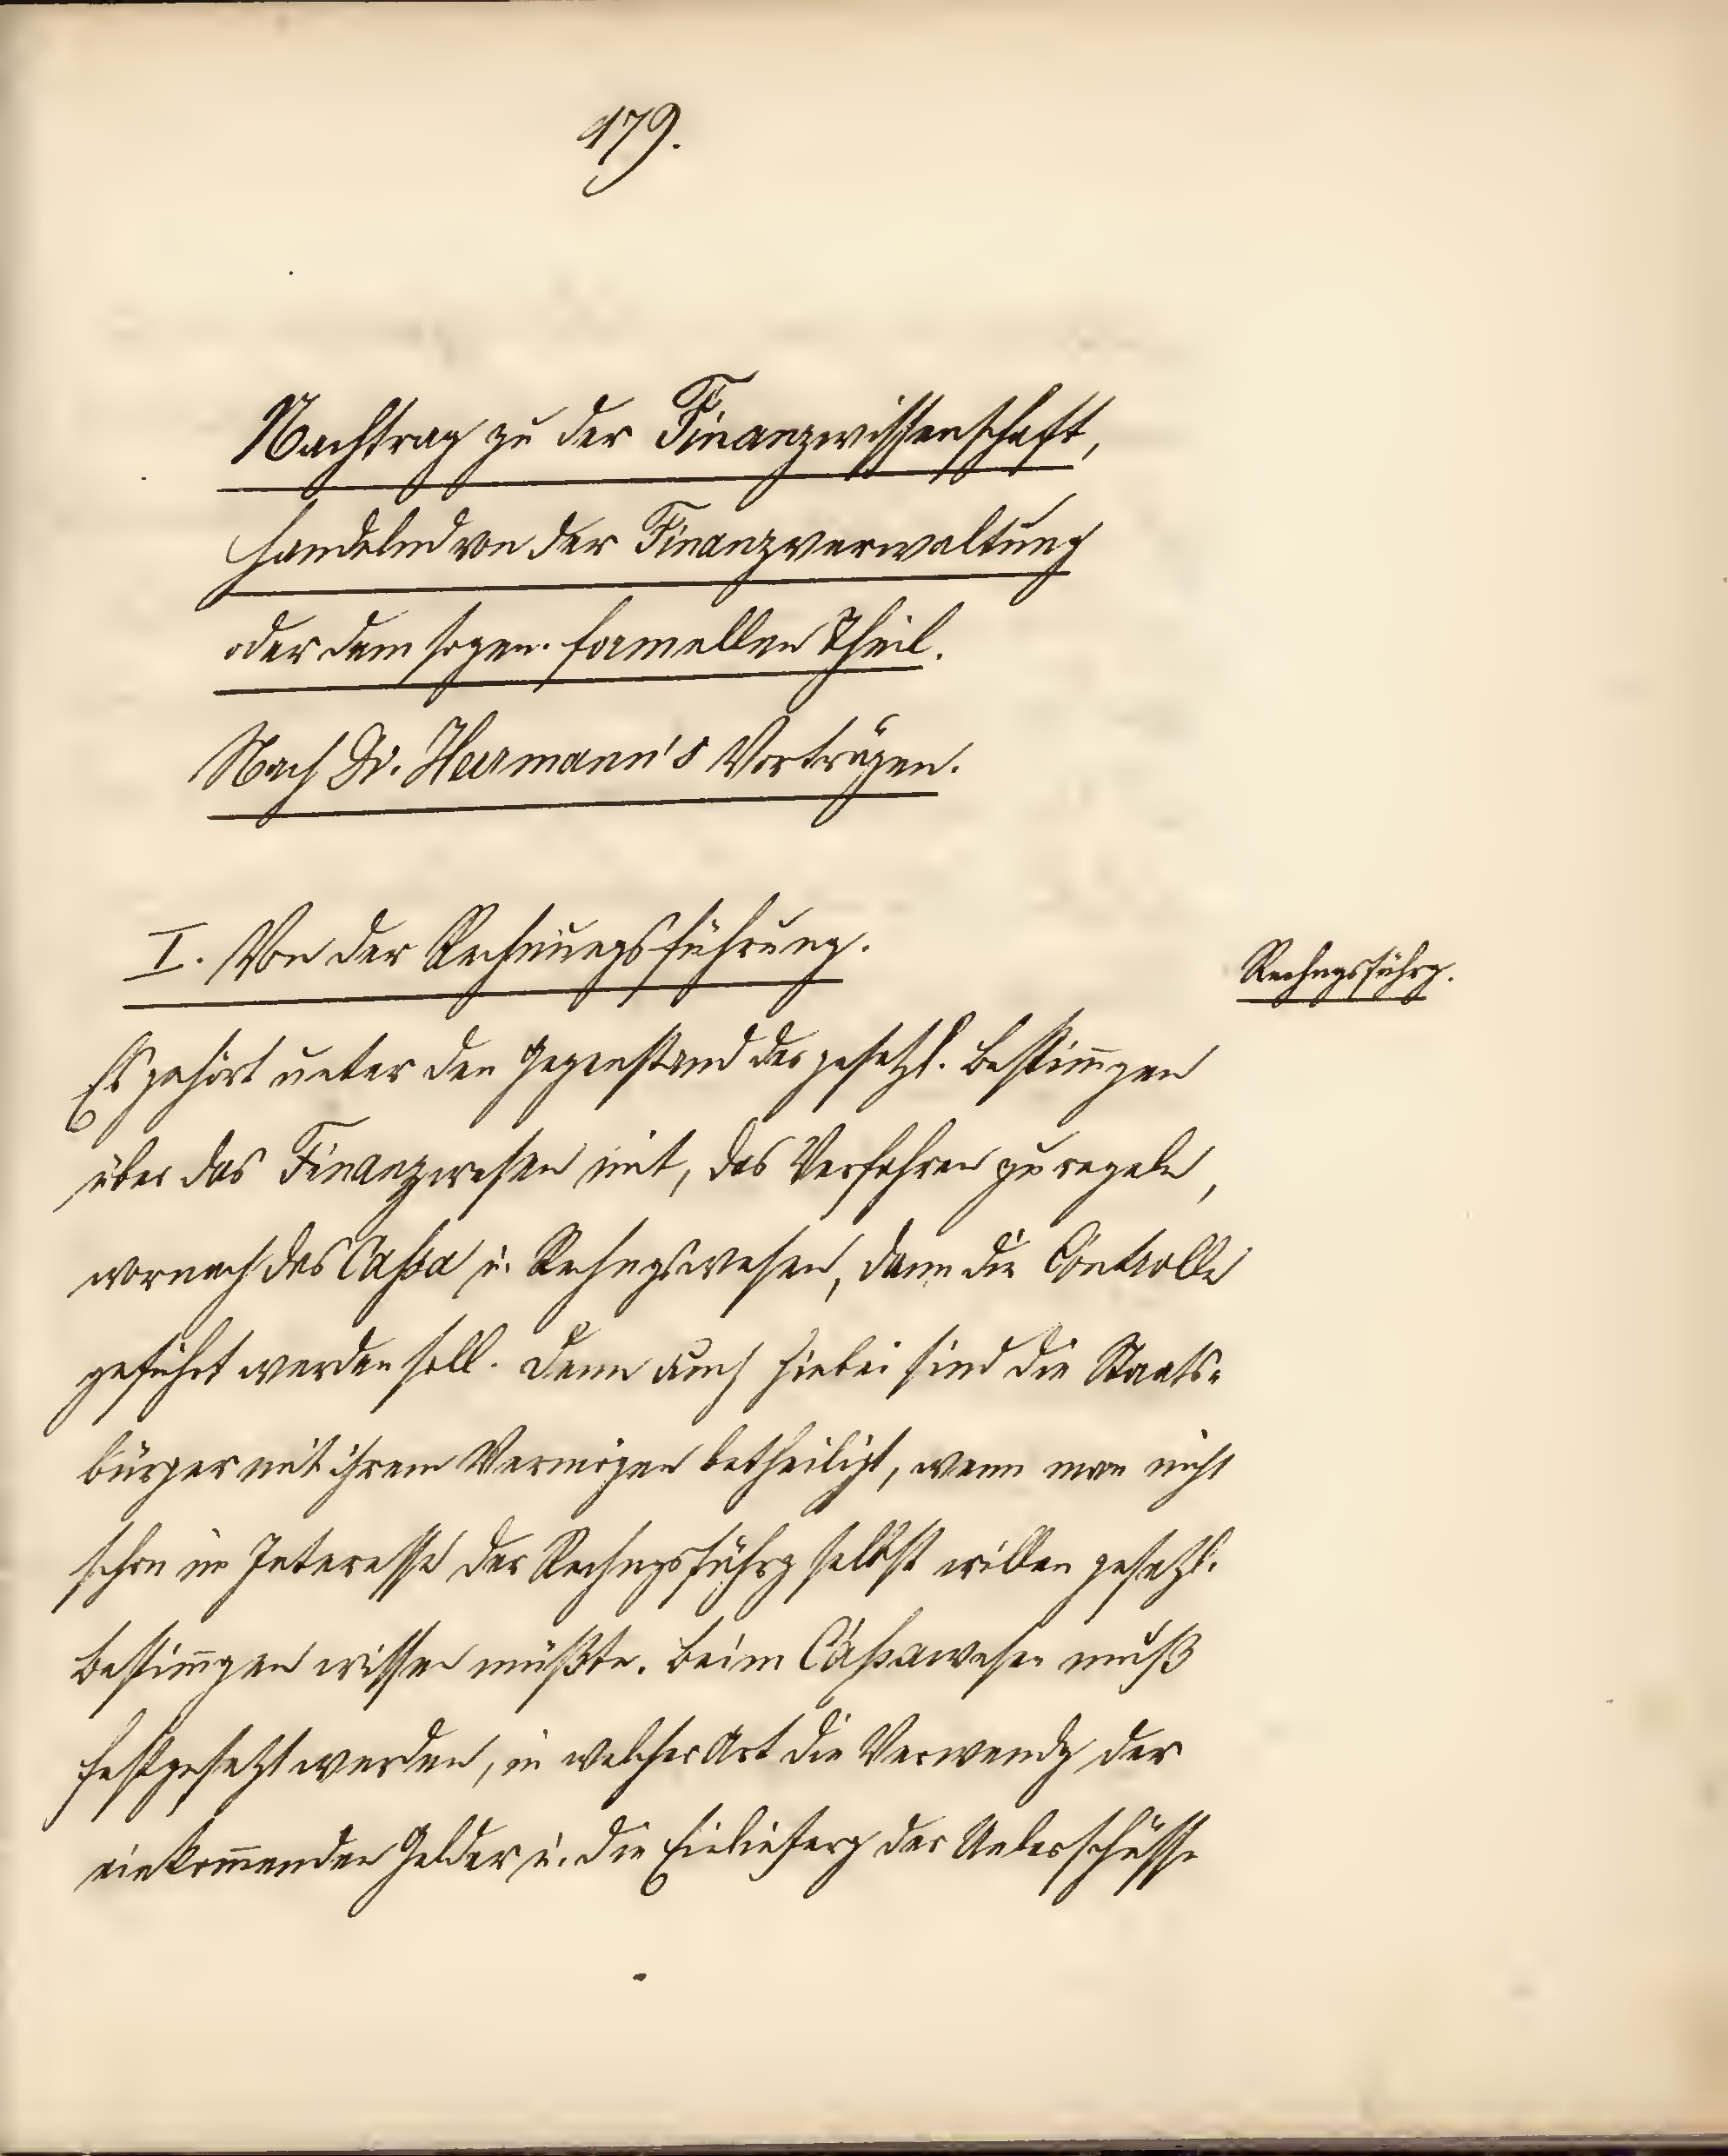 179.
Nachtrag zu der Finanzwissenschaft,
handelnd von der Finanzverwaltung
oder dem sogen. formellen Theil.
Nach Dr. Herrmann's Vorträgen.
I. Von der Rechnungsführung.
Rechngsführg.
Es gehört unter den Gegenstand der gesetzl. Bestim̅gen
über das Finanzwesen mit, das Verfahren zu regeln,
wornach das Cassa u. Rechngswesen, dann die Controlle
geführt werden soll. Denn auch hiebei sind die Staats-
bürger mit ihrem Vermögen betheiligt, wenn man nicht
schon im Interesse der Rechngsführg selbst willen gesetzl.
Bestim̅gen wissen müßte. Beim Cassawesen muß
festgesetzt werden, in welcher Art die Verwendg der
einkom̅enden Gelder u. die Einlieferg der Ueberschüsse